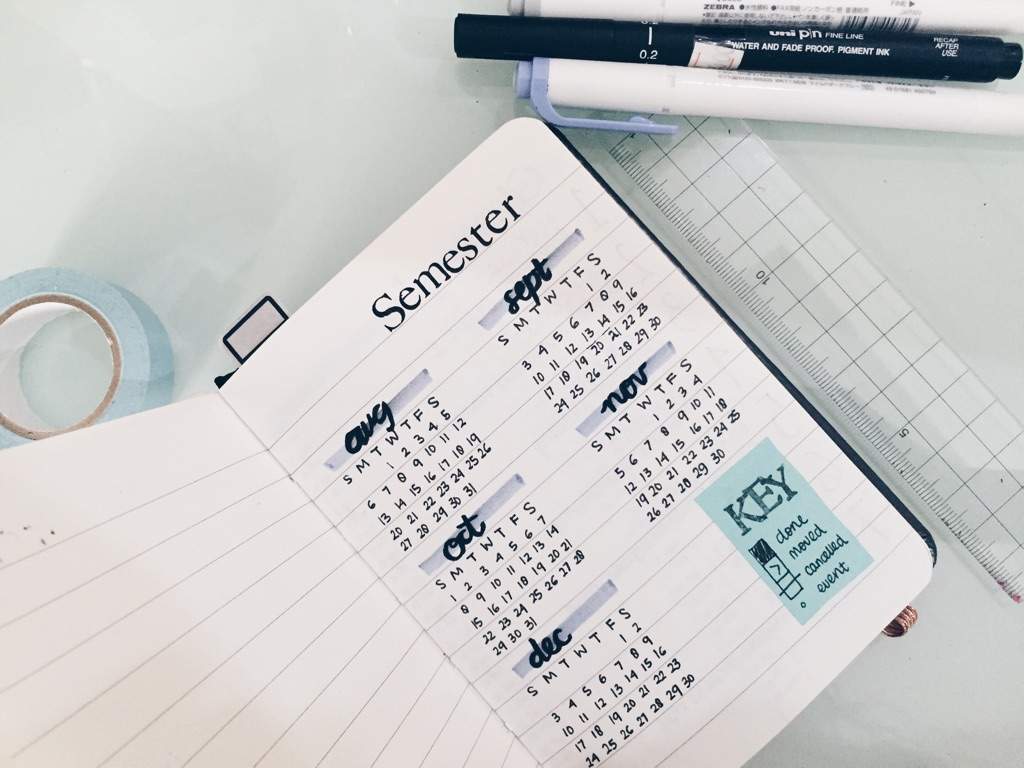 ZEBRA
FINE
0.2
uni pin FINE LINE
WATER AND FADE PROOF. PIGMENT INK
RECAP
AFTER
USE.
Semester
aug
S M T W T F S
1 2 3 4 5
6 7 8 9 10 11 12
13 14 15 16 17 18 19
20 21 22 23 24 25 26
27 28 29 30 31
sept
S M T W T F S
1 2
3 4 5 6 7 8 9
10 11 12 13 14 15 16
17 18 19 20 21 22 23
24 25 26 27 28 29 30
oct
S M T W T F S
1 2 3 4 5 6 7
8 9 10 11 12 13 14
15 16 17 18 19 20 21
22 23 24 25 26 27 28
29 30 31
nov
S M T W T F S
1 2 3 4
5 6 7 8 9 10 11
12 13 14 15 16 17 18
19 20 21 22 23 24 25
26 27 28 29 30
dec
S M T W T F S
1 2
3 4 5 6 7 8 9
10 11 12 13 14 15 16
17 18 19 20 21 22 23
24 25 26 27 28 29 30
KEY
done
moved
cancelled
event
10
5